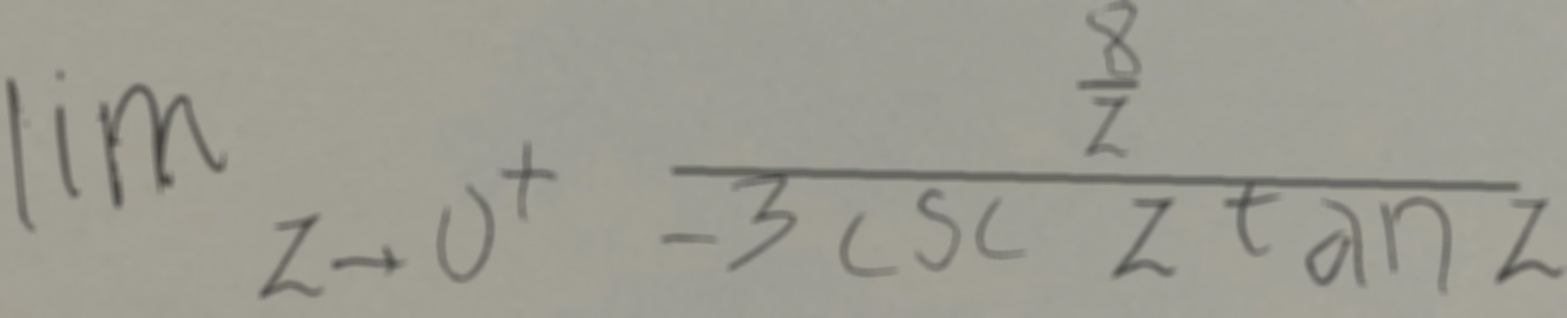 lim z→0⁺ \frac{\frac{8}{z}}{-3 csc z tan z}